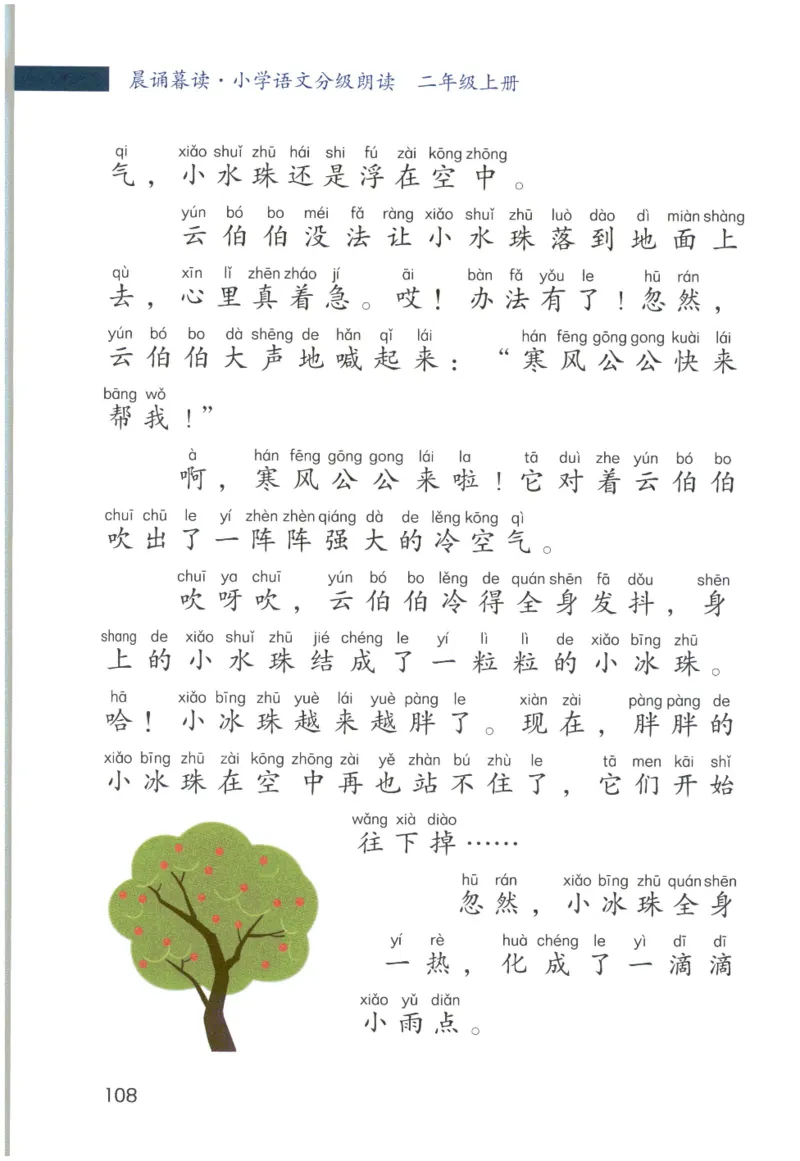 晨诵暮读·小学语文分级朗读 二年级上册
qi xiǎo shuǐ zhū hái shi fú zài kōng zhōng
气，小水珠还是浮在空中。
yún bó bo méi fǎ ràng xiǎo shuǐ zhū luò dào dì miàn shàng
云伯伯没法让小水珠落到地面上
qù xīn lǐ zhēn zháo jí āi bàn fǎ yǒu le hū rán
去，心里真着急。哎！办法有了！忽然，
yún bó bo dà shēng de hǎn qǐ lái hán fēng gōng gong kuài lái
云伯伯大声地喊起来：“寒风公公快来
bāng wǒ
帮我！”
à hán fēng gōng gong lái la tā duì zhe yún bó bo
啊，寒风公公来啦！它对着云伯伯
chuī chū le yí zhèn zhèn qiáng dà de lěng kōng qì
吹出了一阵阵强大的冷空气。
chuī ya chuī yún bó bo lěng de quán shēn fā dǒu shēn
吹呀吹，云伯伯冷得全身发抖，身
shang de xiǎo shuǐ zhū jié chéng le yí lì lì de xiǎo bīng zhū
上的小水珠结成了一粒粒的小冰珠。
hā xiǎo bīng zhū yuè lái yuè pàng le xiàn zài pàng pàng de
哈！小冰珠越来越胖了。现在，胖胖的
xiǎo bīng zhū zài kōng zhōng zài yě zhàn bú zhù le tā men kāi shǐ
小冰珠在空中再也站不住了，它们开始
wǎng xià diào
往下掉……
hū rán xiǎo bīng zhū quán shēn
忽然，小冰珠全身
yí rè huà chéng le yì dī dī
一热，化成了一滴滴
xiǎo yǔ diǎn
小雨点。
108